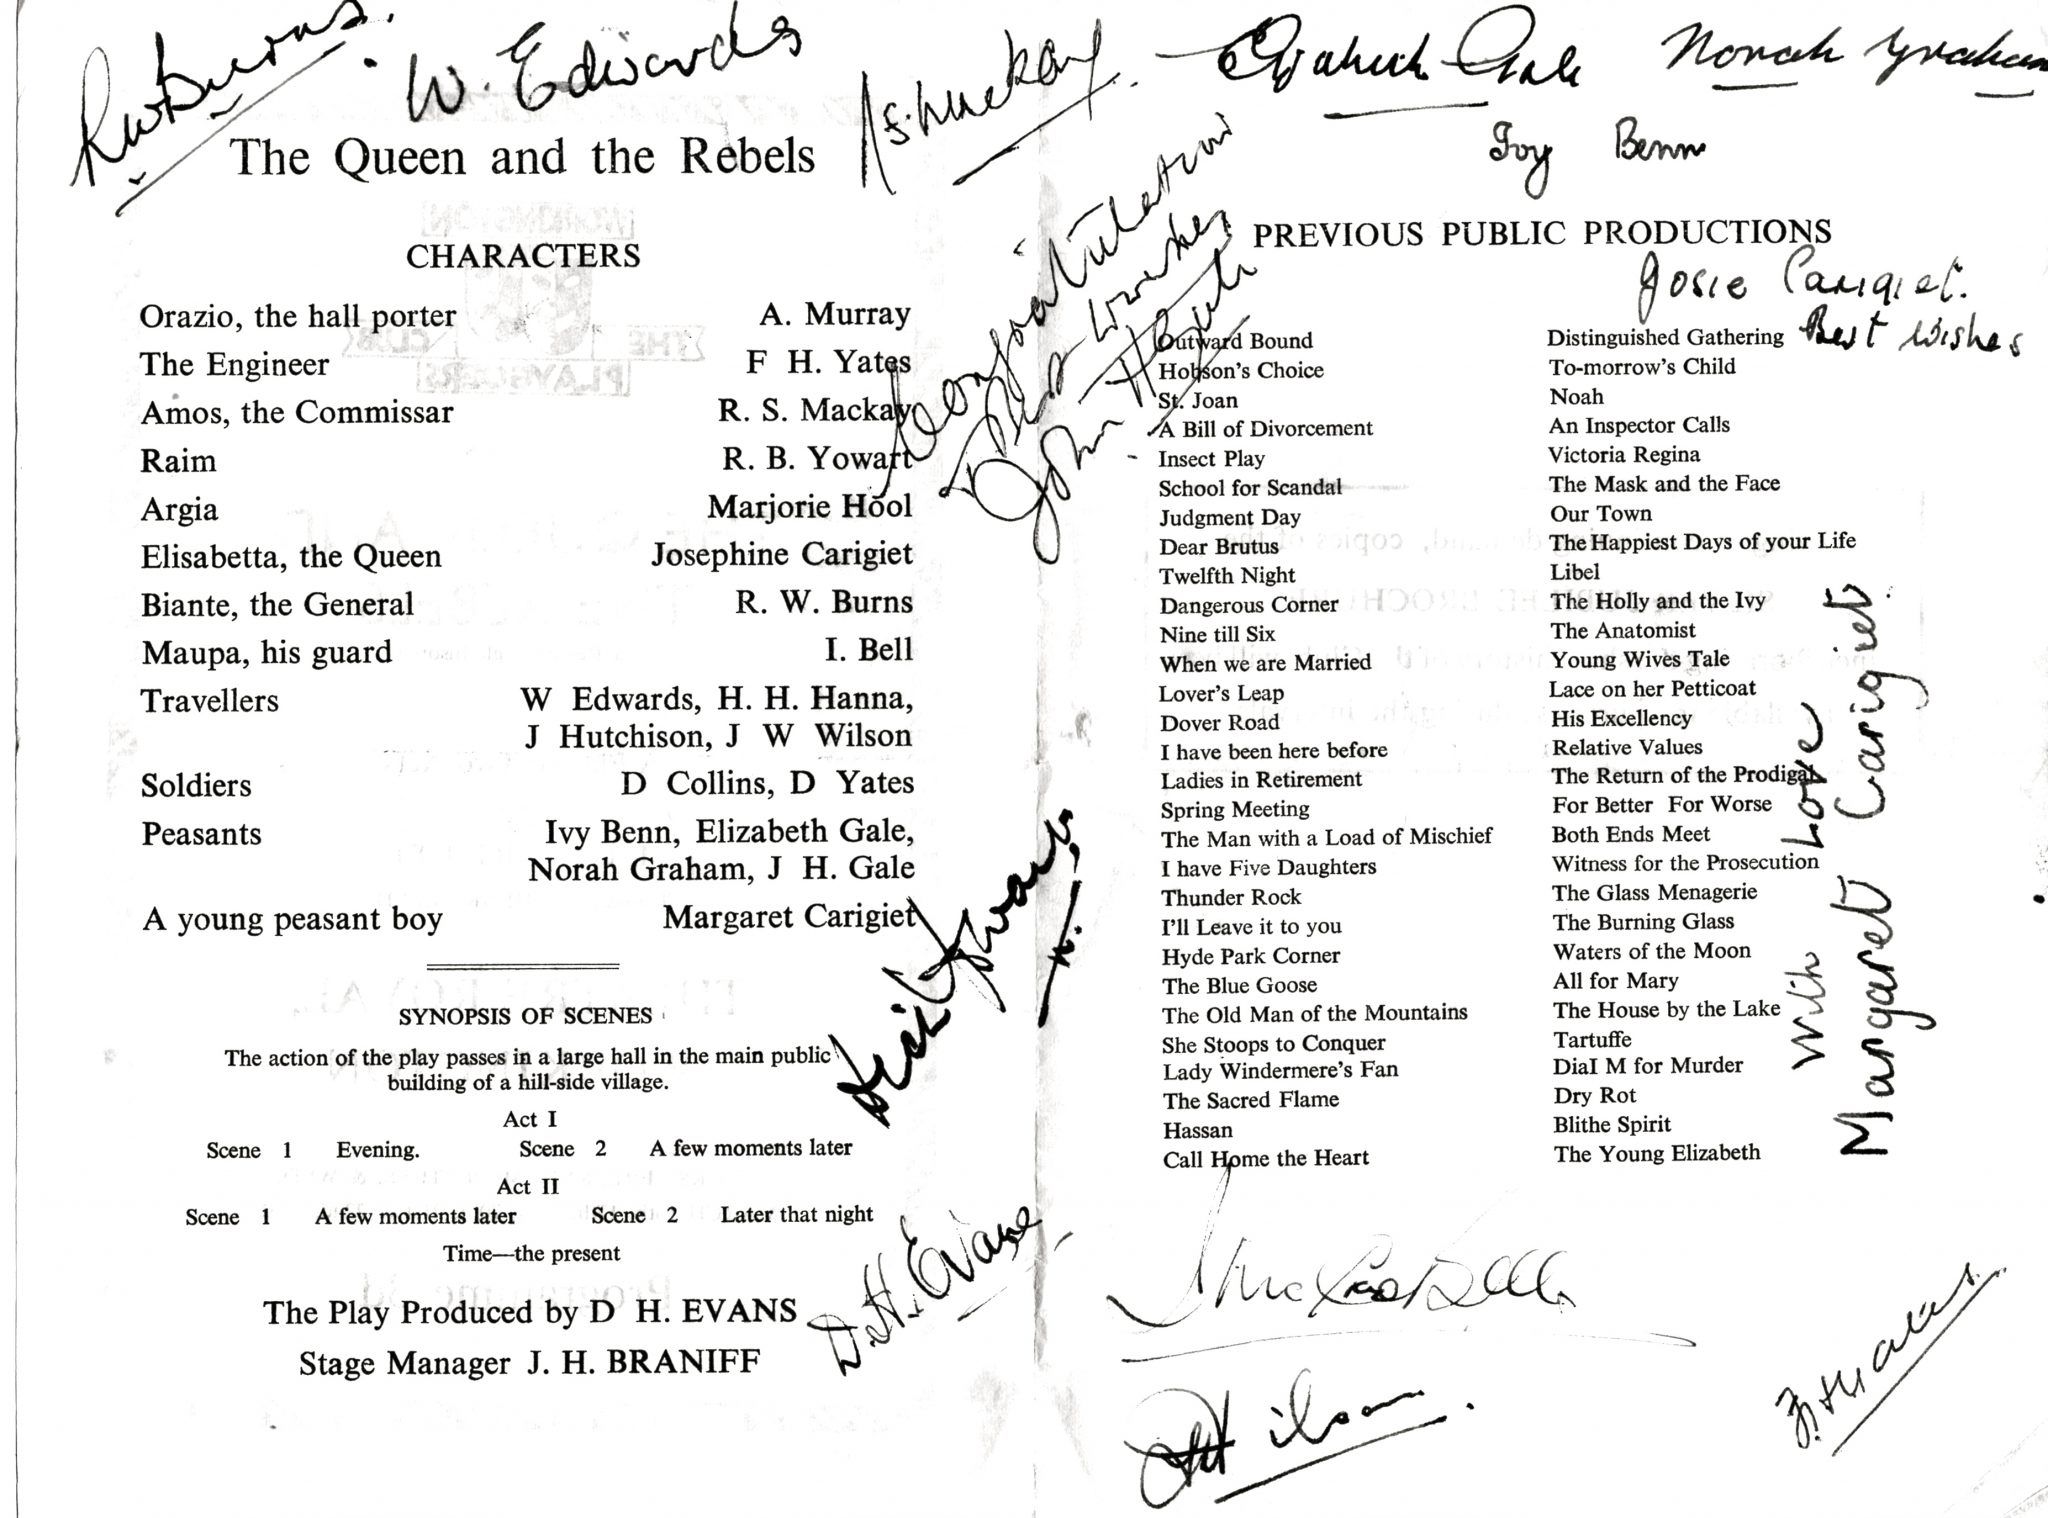 R W Burns.
W. Edwards
R S Mackay.
Elizabeth Gale
Norah Graham
Ivy Benn
The Queen and the Rebels
CHARACTERS
Orazio, the hall porter A. Murray
The Engineer F H. Yates
Amos, the Commissar R. S. Mackay
Raim R. B. Yowart
Argia Marjorie Hool
Elisabetta, the Queen Josephine Carigiet
Biante, the General R. W. Burns
Maupa, his guard I. Bell
Travellers W Edwards, H. H. Hanna,
J Hutchison, J W Wilson
Soldiers D Collins, D Yates
Peasants Ivy Benn, Elizabeth Gale,
Norah Graham, J H. Gale
A young peasant boy Margaret Carigiet
SYNOPSIS OF SCENES
The action of the play passes in a large hall in the main public
building of a hill-side village.
Act I
Scene 1 Evening. Scene 2 A few moments later
Act II
Scene 1 A few moments later Scene 2 Later that night
Time—the present
The Play Produced by D H. EVANS
Stage Manager J. H. BRANIFF
Congratulations
Best wishes
John H Gale
D. H. Evans
PREVIOUS PUBLIC PRODUCTIONS
Josie Carigiet.
Best Wishes
Outward Bound
Hobson's Choice
St. Joan
A Bill of Divorcement
Insect Play
School for Scandal
Judgment Day
Dear Brutus
Twelfth Night
Dangerous Corner
Nine till Six
When we are Married
Lover's Leap
Dover Road
I have been here before
Ladies in Retirement
Spring Meeting
The Man with a Load of Mischief
I have Five Daughters
Thunder Rock
I'll Leave it to you
Hyde Park Corner
The Blue Goose
The Old Man of the Mountains
She Stoops to Conquer
Lady Windermere's Fan
The Sacred Flame
Hassan
Call Home the Heart
Distinguished Gathering
To-morrow's Child
Noah
An Inspector Calls
Victoria Regina
The Mask and the Face
Our Town
The Happiest Days of your Life
Libel
The Holly and the Ivy
The Anatomist
Young Wives Tale
Lace on her Petticoat
His Excellency
Relative Values
The Return of the Prodigal
For Better For Worse
Both Ends Meet
Witness for the Prosecution
The Glass Menagerie
The Burning Glass
Waters of the Moon
All for Mary
The House by the Lake
Tartuffe
Dial M for Murder
Dry Rot
Blithe Spirit
The Young Elizabeth
With Love
Margaret Carigiet.